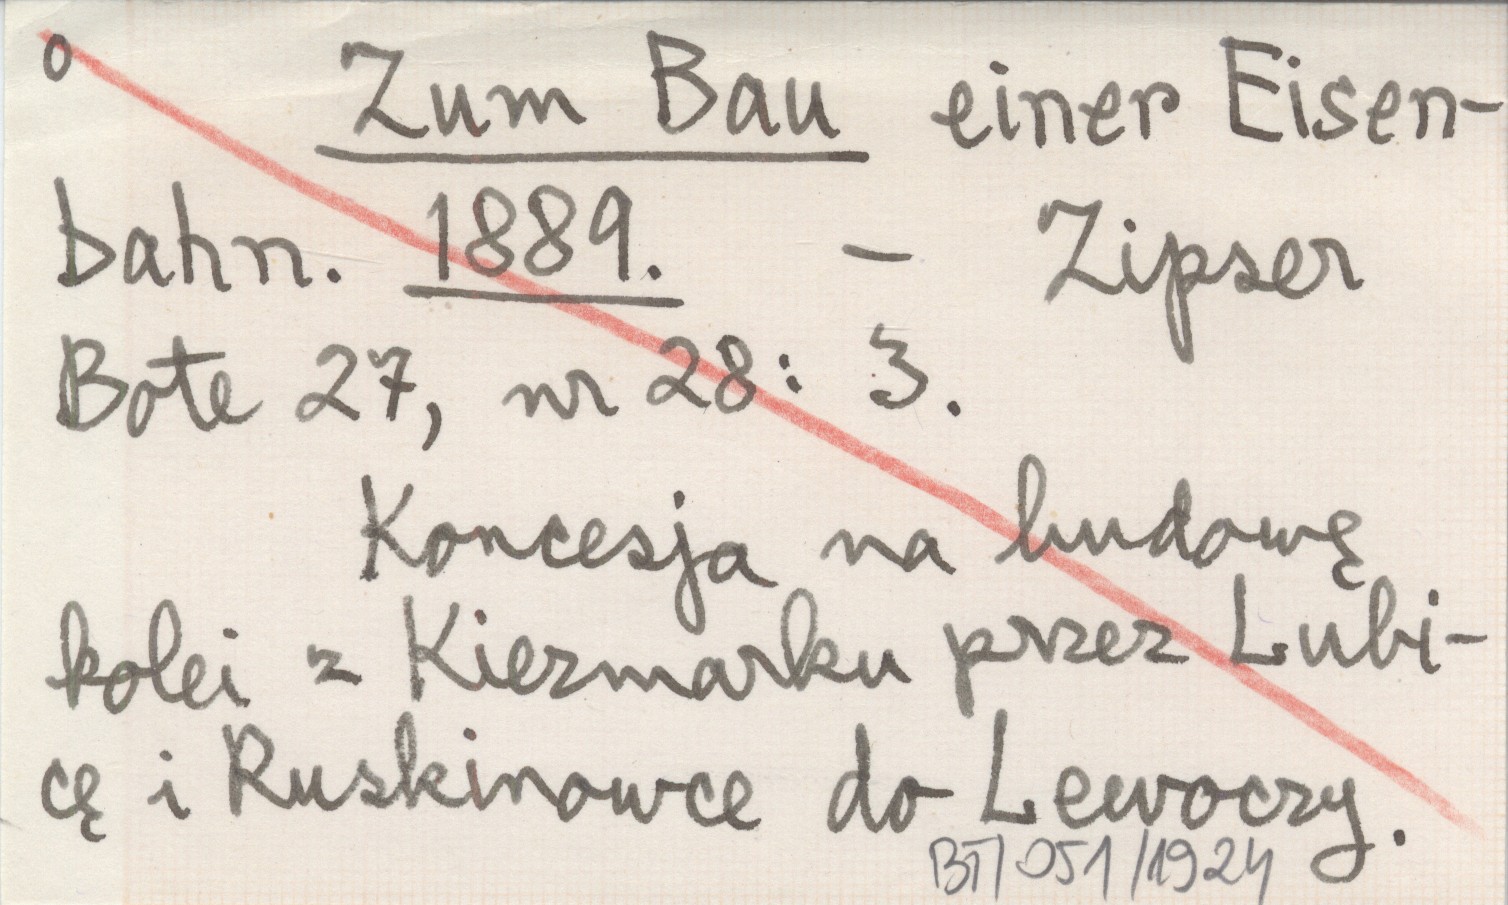 o Zum Bau einer Eisen-
bahn. 1889. – Zipser
Bote 27, nr 28: 3.
Koncesja na budowę
kolei z Kiezmarku przez Lubi-
cę i Ruskinowce do Lewoczy.
BT/051/1924